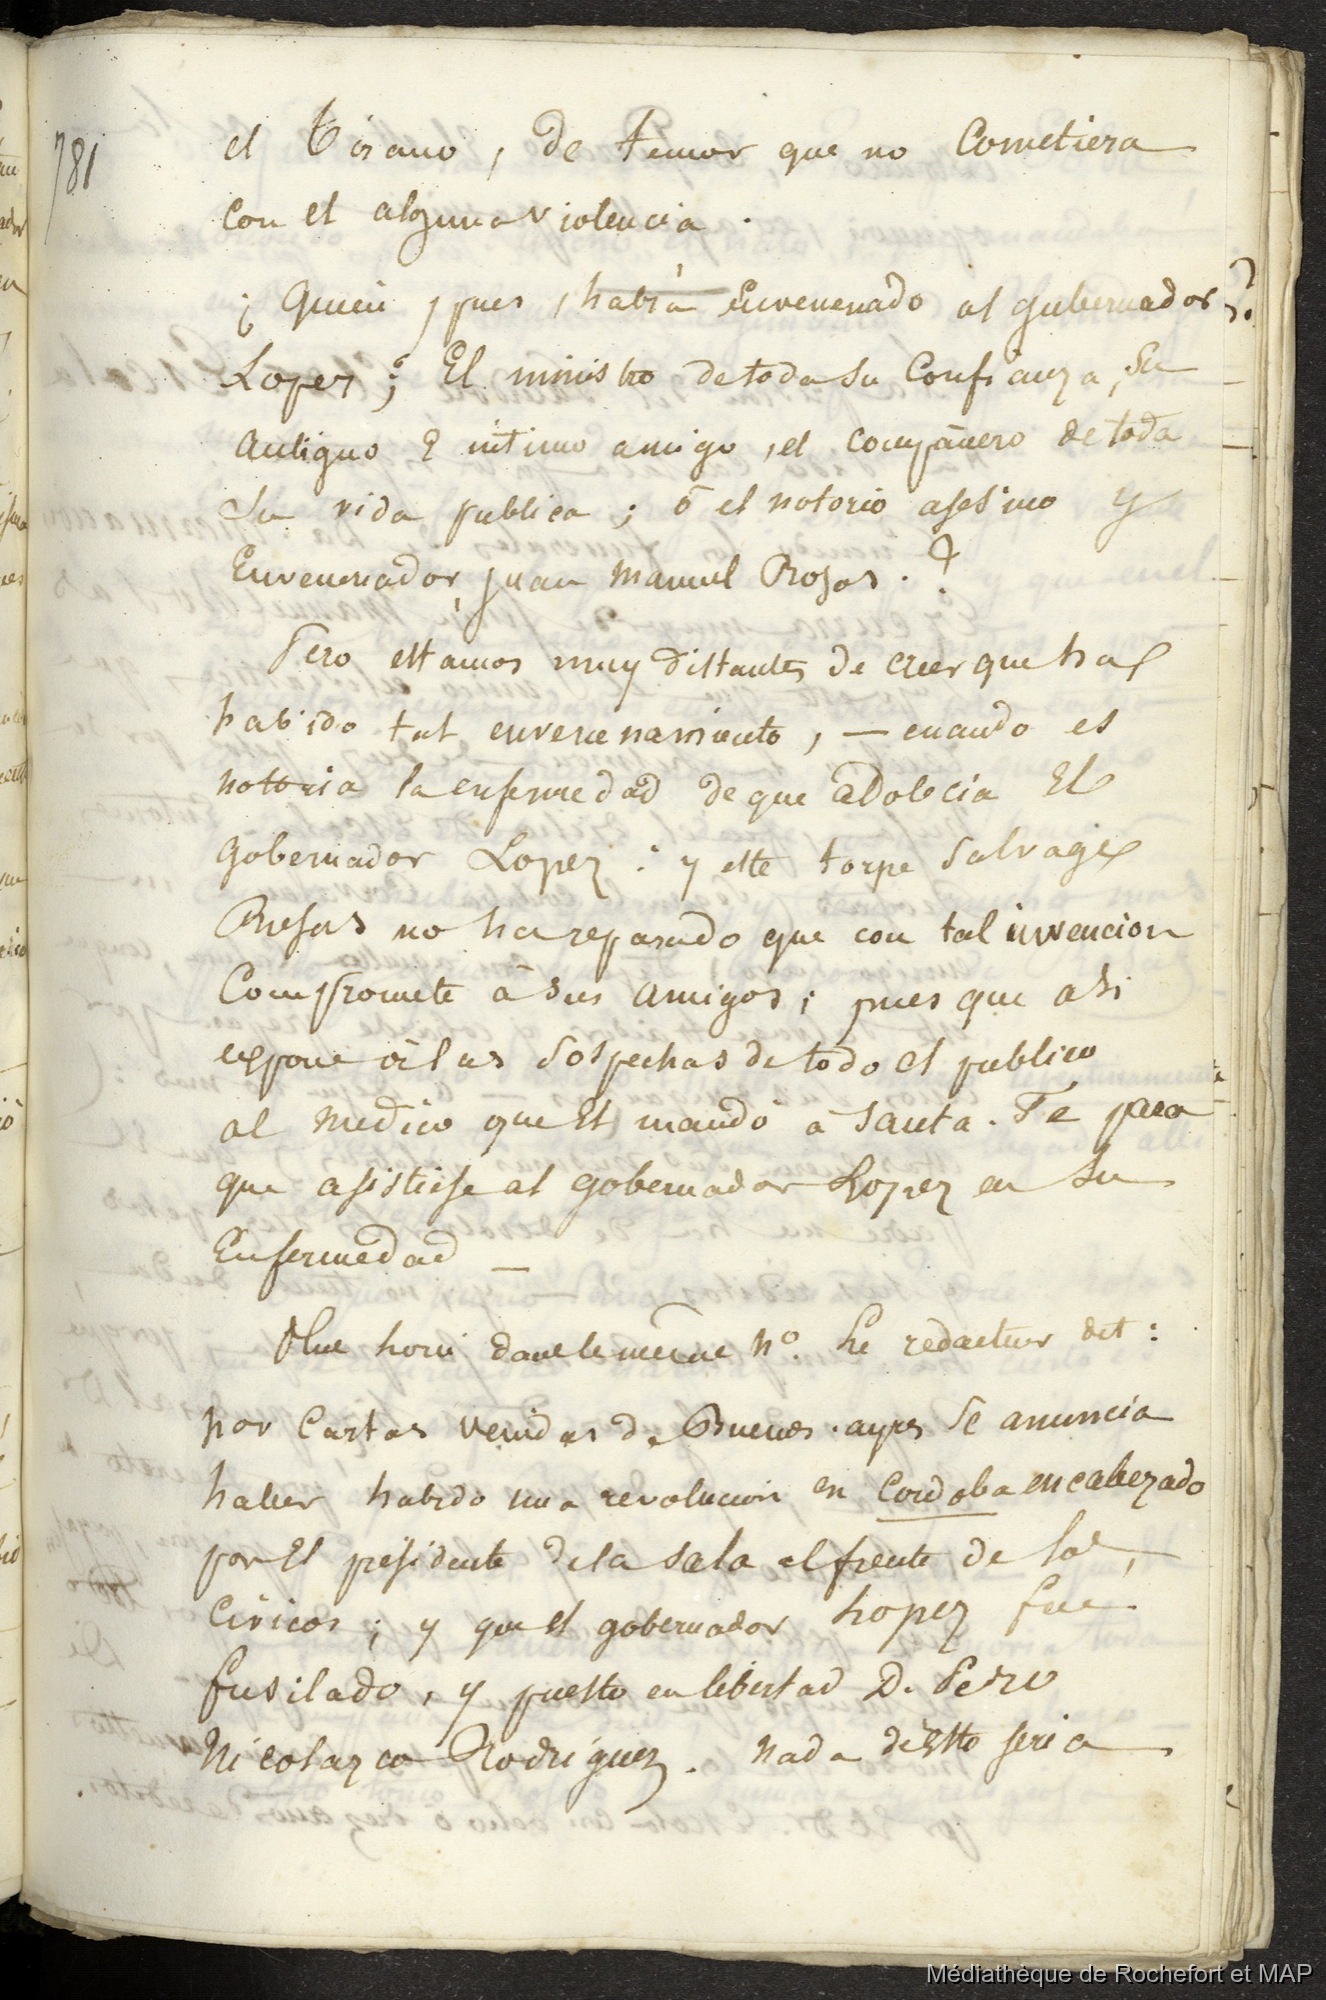 781
el tirano, de temor que no Cometiera
con el alguna violencia.
¿ Quien, pues, habrá Envenenado al gubernador
Lopez ; El ministro de toda su Confianza, su
antiguo é intimo amigo, el compañero de toda
su vida publica ; ó el notorio asesino y
Envenenador, Juan Manuel Rosas. ?
Pero estamos muy distantes de creer que ha
habido tal envenenamiento, — cuando es
notoria la enfermedad de que adolecia El
gobernador Lopez : y este torpe salvage
Rosas no ha reparado que con tal invencion
Compromete á sus amigos ; pues que asi
espone á las sospechas de todo el publico
al medico que El mandó á Santa. Fe para
que asistiese al gobernador Lopez en su
Enfermedad _
Plus loin dans le même N°. Le redacteur dit :
por Cartas venidas de Buenos. ayres se anuncia
haber habido una revolucion en Cordoba encabezado
por El presidente de la sala al frente de los
Civicos ; y que el gobernador Lopez fue
fusilado, y puesto en libertad D. Pedro
Nicolazco Rodriguez. nada de esto seria
Médiathèque de Rochefort et MAP